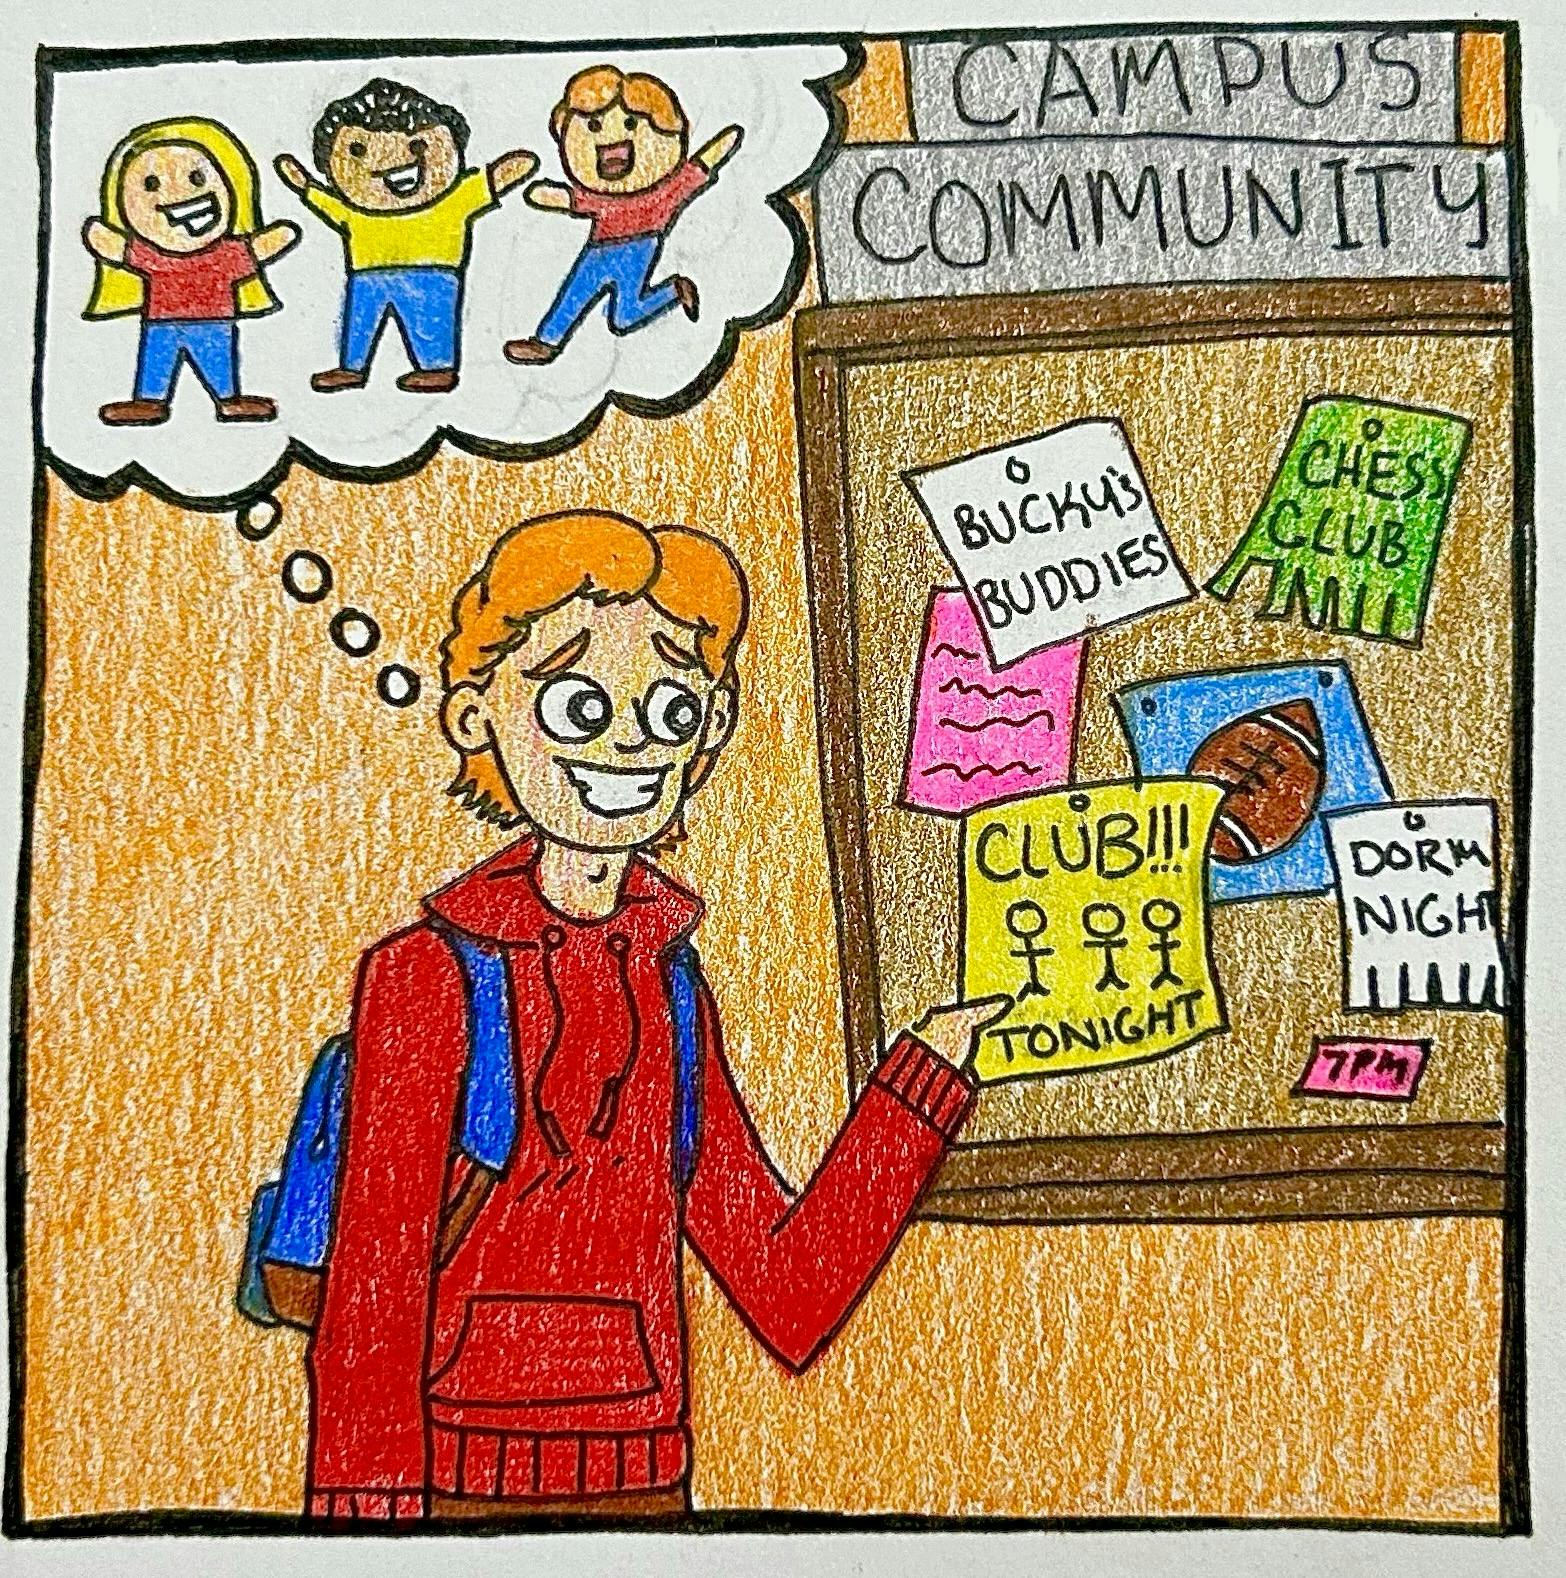 CAMPUS
COMMUNITY
BUCKY'S
BUDDIES
CHESS
CLUB
CLUB!!!
TONIGHT
DORM
NIGHT
7PM